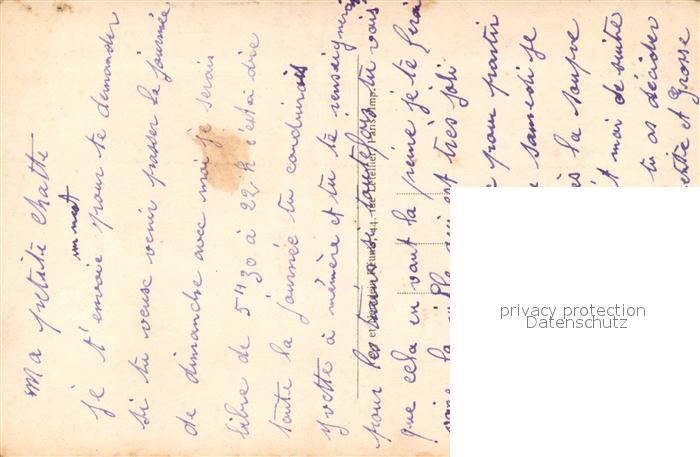 Ma petite chatte
un mot
je t'envoie pour te demander
si tu veux venir passer la journée
de dimanche avec moi je serais
libre de 5h30 à 22h c'est à dire
toute la journée tu conduirais
yvette à mémère et tu te renseignerais
pour les trains si toutefois tu vois
que cela en vaut la peine je te ferai
la ville qui est très joli
pour partir
samedi je
la soupe
moi de suite
tu as décider
et grosse
44, rue Letellier, Paris Imp.
privacy protection
Datenschutz